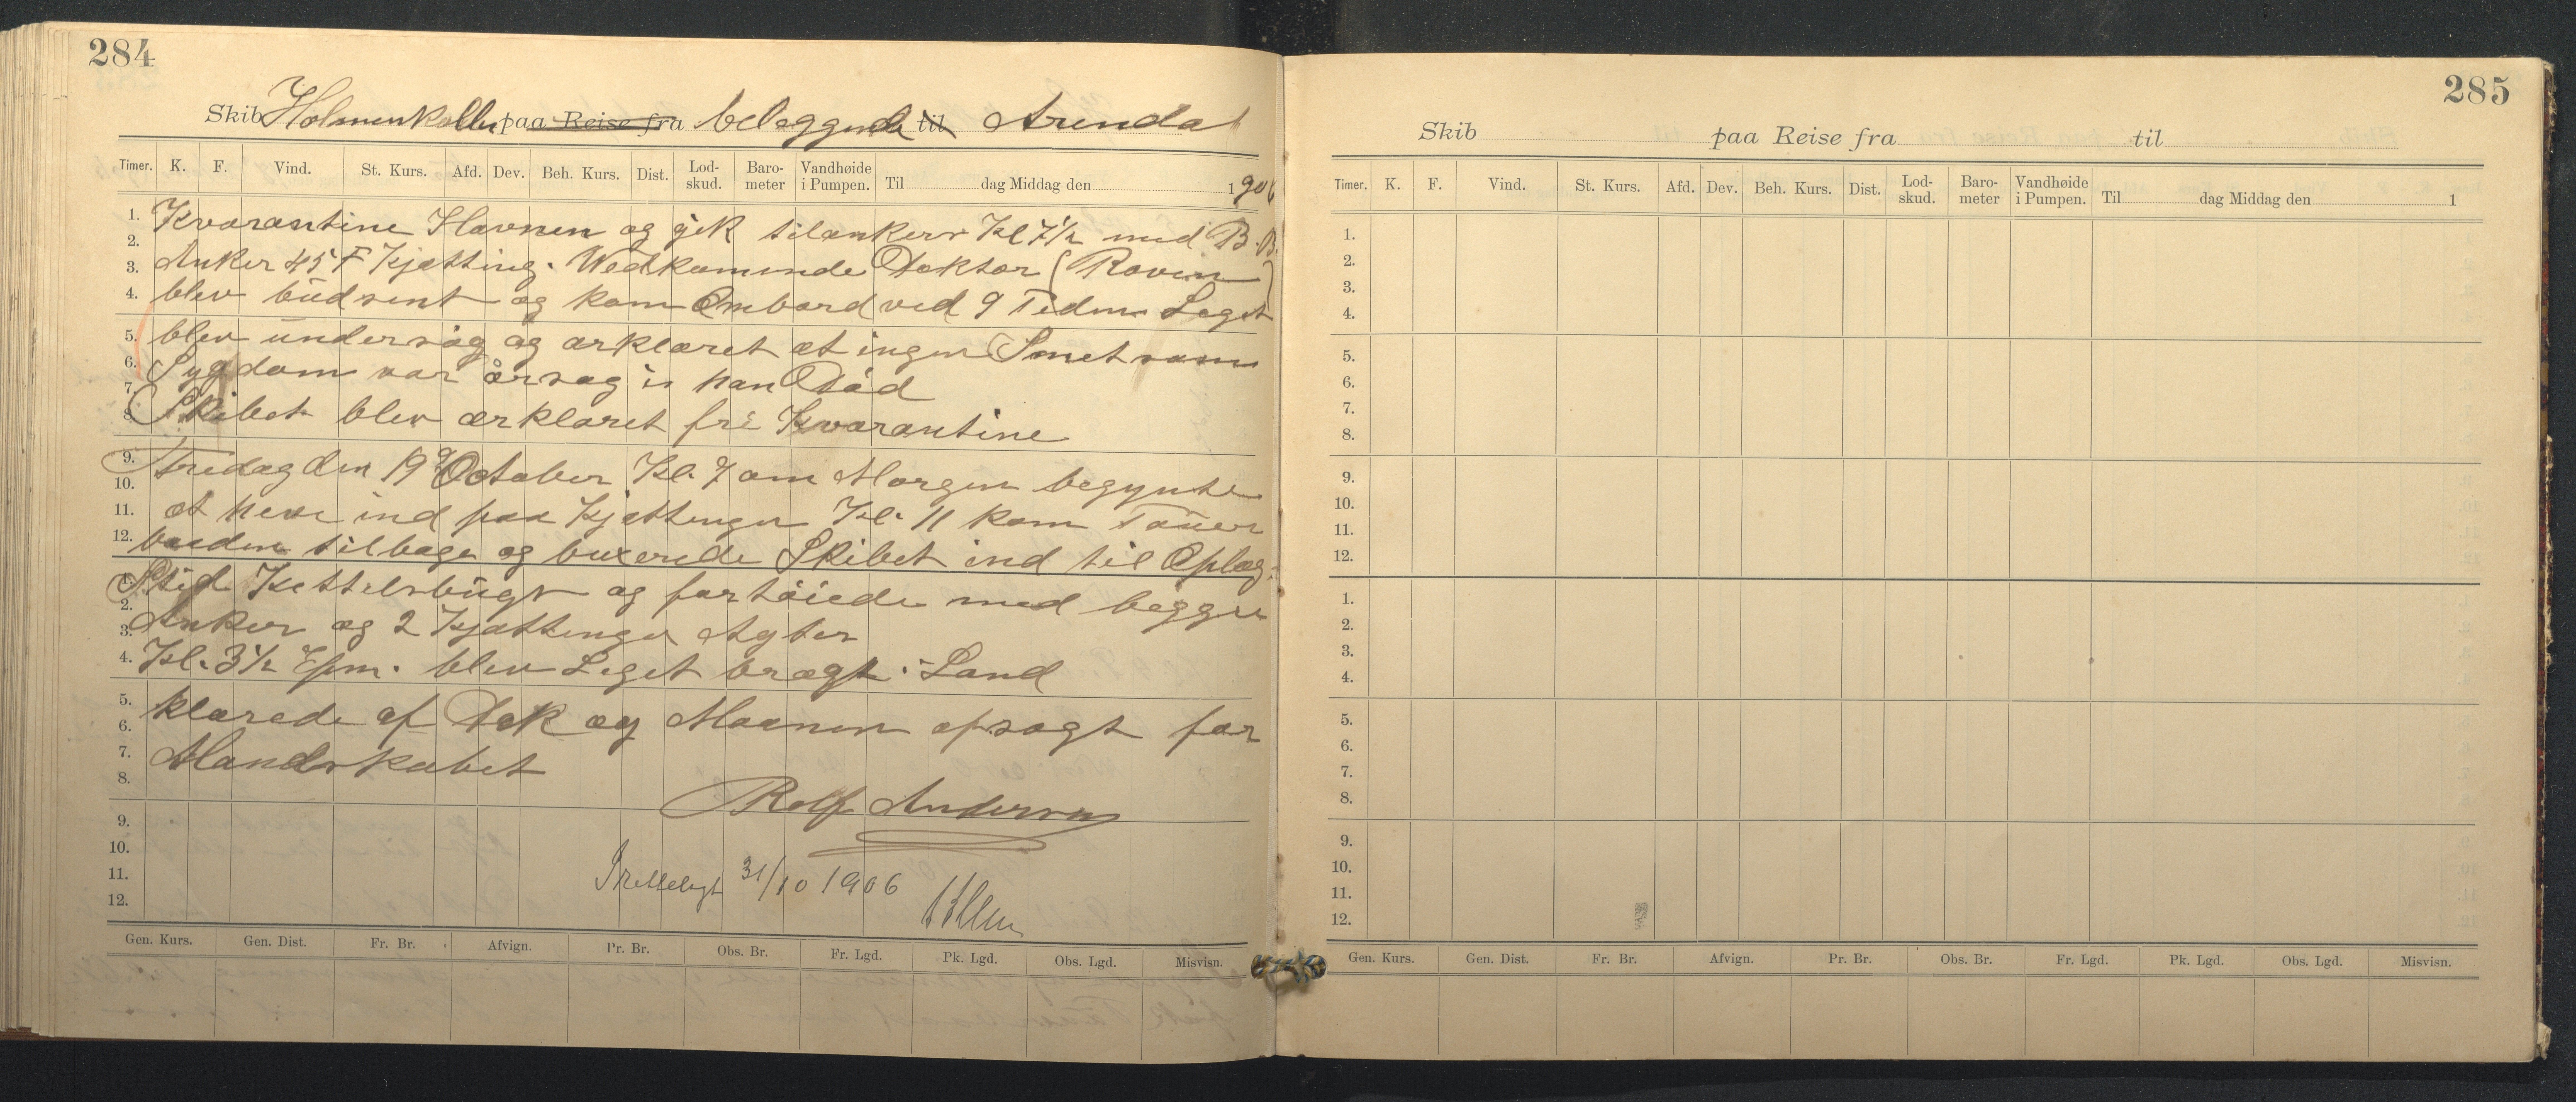 284
Skib Holmenkollen paa Reise fra beleggende til Arendal
Timer. K. F. Vind. St. Kurs. Afd. Dev. Beh. Kurs. Dist. Lod-skud. Baro-meter Vandhøide i Pumpen. Til dag Middag den 1906
1. Kvarantine Havnen og gik tilankers Kl 7½ med B.B.
2.
3. Anker 45 F Kjætting. Wedkommende Doktor (Roven)
4. blev budsent og kom Ombord ved 9 Tiden Leget
5. blev undersøg og ærklæret at ingen Smetsom
6. Sygdom var årsag i han Død
7.
8. Skibet blev ærklæret fri Kvarantine
9. Fredag den 19de October Kl. 7 om Morgen begynte
10.
11. at heve ind paa Kjættingen Kl. 11 kom Tauer
12. baaden tilbage og buxerede Skibet ind til Oplæg
1. Sted Kettelsbugt og fortøiede med begge
2.
3. Anker og 2 Kjættinger Agter
4. Kl. 3½ Epm. blev Leget bragt i Land
5. klarede af Dek og Maanen opsagt for
6.
7. Mandskabet
8.
Rolf Andersen
9.
10.
11. 31/10 1906
12.
Gen. Kurs. Gen. Dist. Fr. Br. Afvign. Pr. Br. Obs. Br. Fr. Lgd. Pk. Lgd. Obs. Lgd. Misvisn.
285
Skib paa Reise fra til
Timer. K. F. Vind. St. Kurs. Afd. Dev. Beh. Kurs. Dist. Lod-skud. Baro-meter Vandhøide i Pumpen. Til dag Middag den 1
1.
2.
3.
4.
5.
6.
7.
8.
9.
10.
11.
12.
1.
2.
3.
4.
5.
6.
7.
8.
9.
10.
11.
12.
Gen. Kurs. Gen. Dist. Fr. Br. Afvign. Pr. Br. Obs. Br. Fr. Lgd. Pk. Lgd. Obs. Lgd. Misvisn.